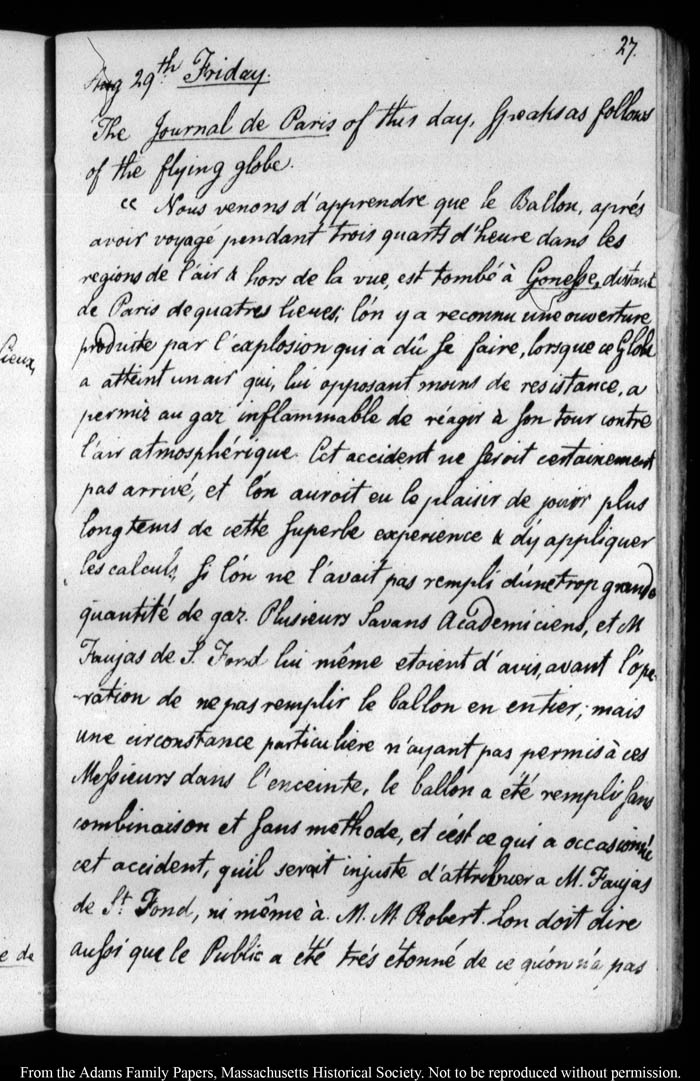 27.
Aug 29th. Friday.
The Journal de Paris of this day, speaks as follows
of the flying globe.
“ Nous venons d'apprendre que le Ballon, aprés
avoir voyagé pendant trois quarts d'heure dans les
regions de l'air & hors de la vue, est tombé à Gonesse, distant
de Paris de quatres lieues; l'on y a reconnu une ouverture
produite par l'explosion qui a dû se faire, lorsque ce Globe
a atteint un air qui, lui opposant moins de resistance, a
permiz au gaz inflammable de réagir à son tour contre
l'air atmosphérique. Cet accident ne seroit certainement
pas arrivé, et l'on auroit eu le plaisir de jouir plus
longtems de cette superbe experience & d'y appliquer
les calculs, si l'on ne l'avait pas rempli d'une trop grande
quantité de gaz. Plusieurs Savans Academiciens, et M
Faujas de S. Fond lui même etoient d'avis, avant l'ope-
-ration de ne pas remplir le ballon en entier; mais
une circonstance particuliere n'ayant pas permis à ces
Messieurs dans l'enceinte, le ballon a été rempli sans
combinaison et sans methode, et c'est ce qui a occasionné
cet accident, qu'il serait injuste d'attribuer a M. Faujas
de St. Fond, ni même à M. M Robert. L'on doit dire
aussi que le Public a été trés étonné de ce qu'on n'a pas
lieux,
e de
From the Adams Family Papers, Massachusetts Historical Society. Not to be reproduced without permission.